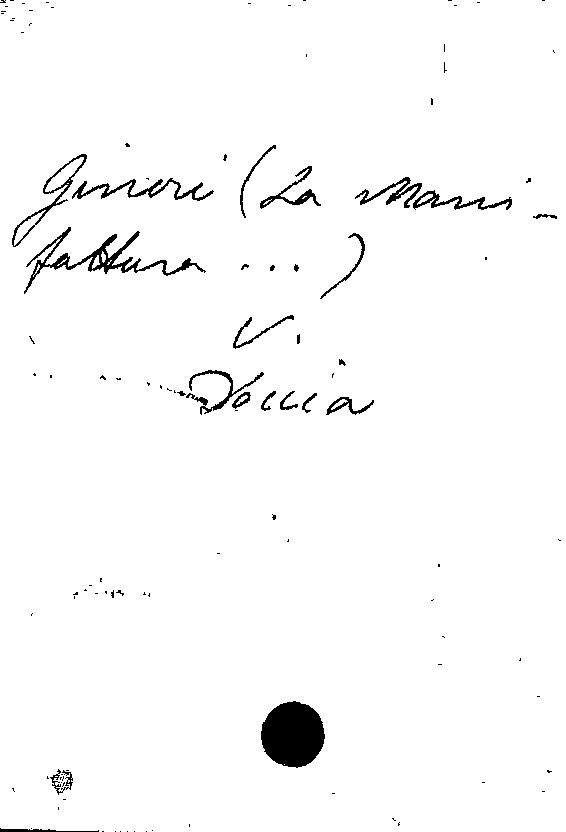 Ginori (La Mani-
fattura ...)
V.
Doccia